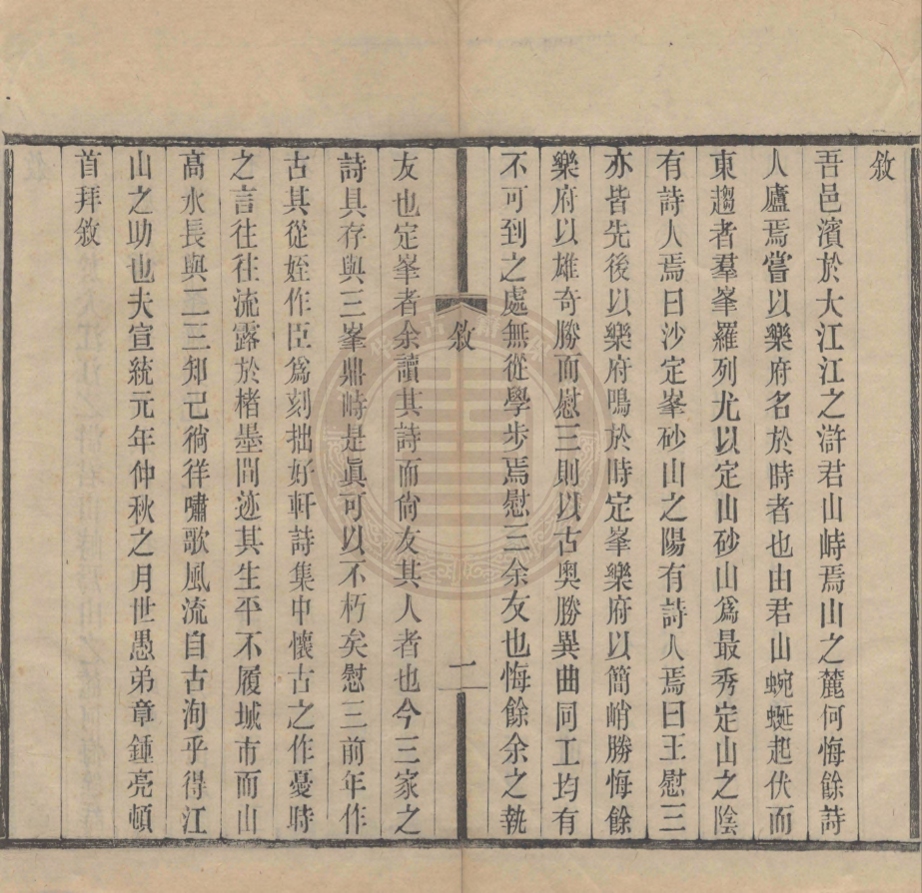 敘
吾邑濱於大江江之滸君山峙焉山之麓何悔餘詩
人廬焉嘗以樂府名於時者也由君山蜿蜒起伏而
東趨者羣峯羅列尤以定山砂山爲最秀定山之陰
有詩人焉曰沙定峯砂山之陽有詩人焉曰王慰三
亦皆先後以樂府鳴於時定峯樂府以簡峭勝悔餘
樂府以雄奇勝而慰三則以古奥勝異曲同工均有
不可到之處無從學步焉慰三余友也悔餘余之執
敘
一
友也定峯者余讀其詩而尙友其人者也今三家之
詩具存與三峯鼎峙是眞可以不朽矣慰三前年作
古其從姪作臣爲刻拙好軒詩集中懷古之作憂時
之言往往流露於楮墨間迹其生平不履城市而山
高水長與二三知己徜徉嘯歌風流自古洵乎得江
山之助也夫宣統元年仲秋之月世愚弟章鍾亮頓
首拜敘